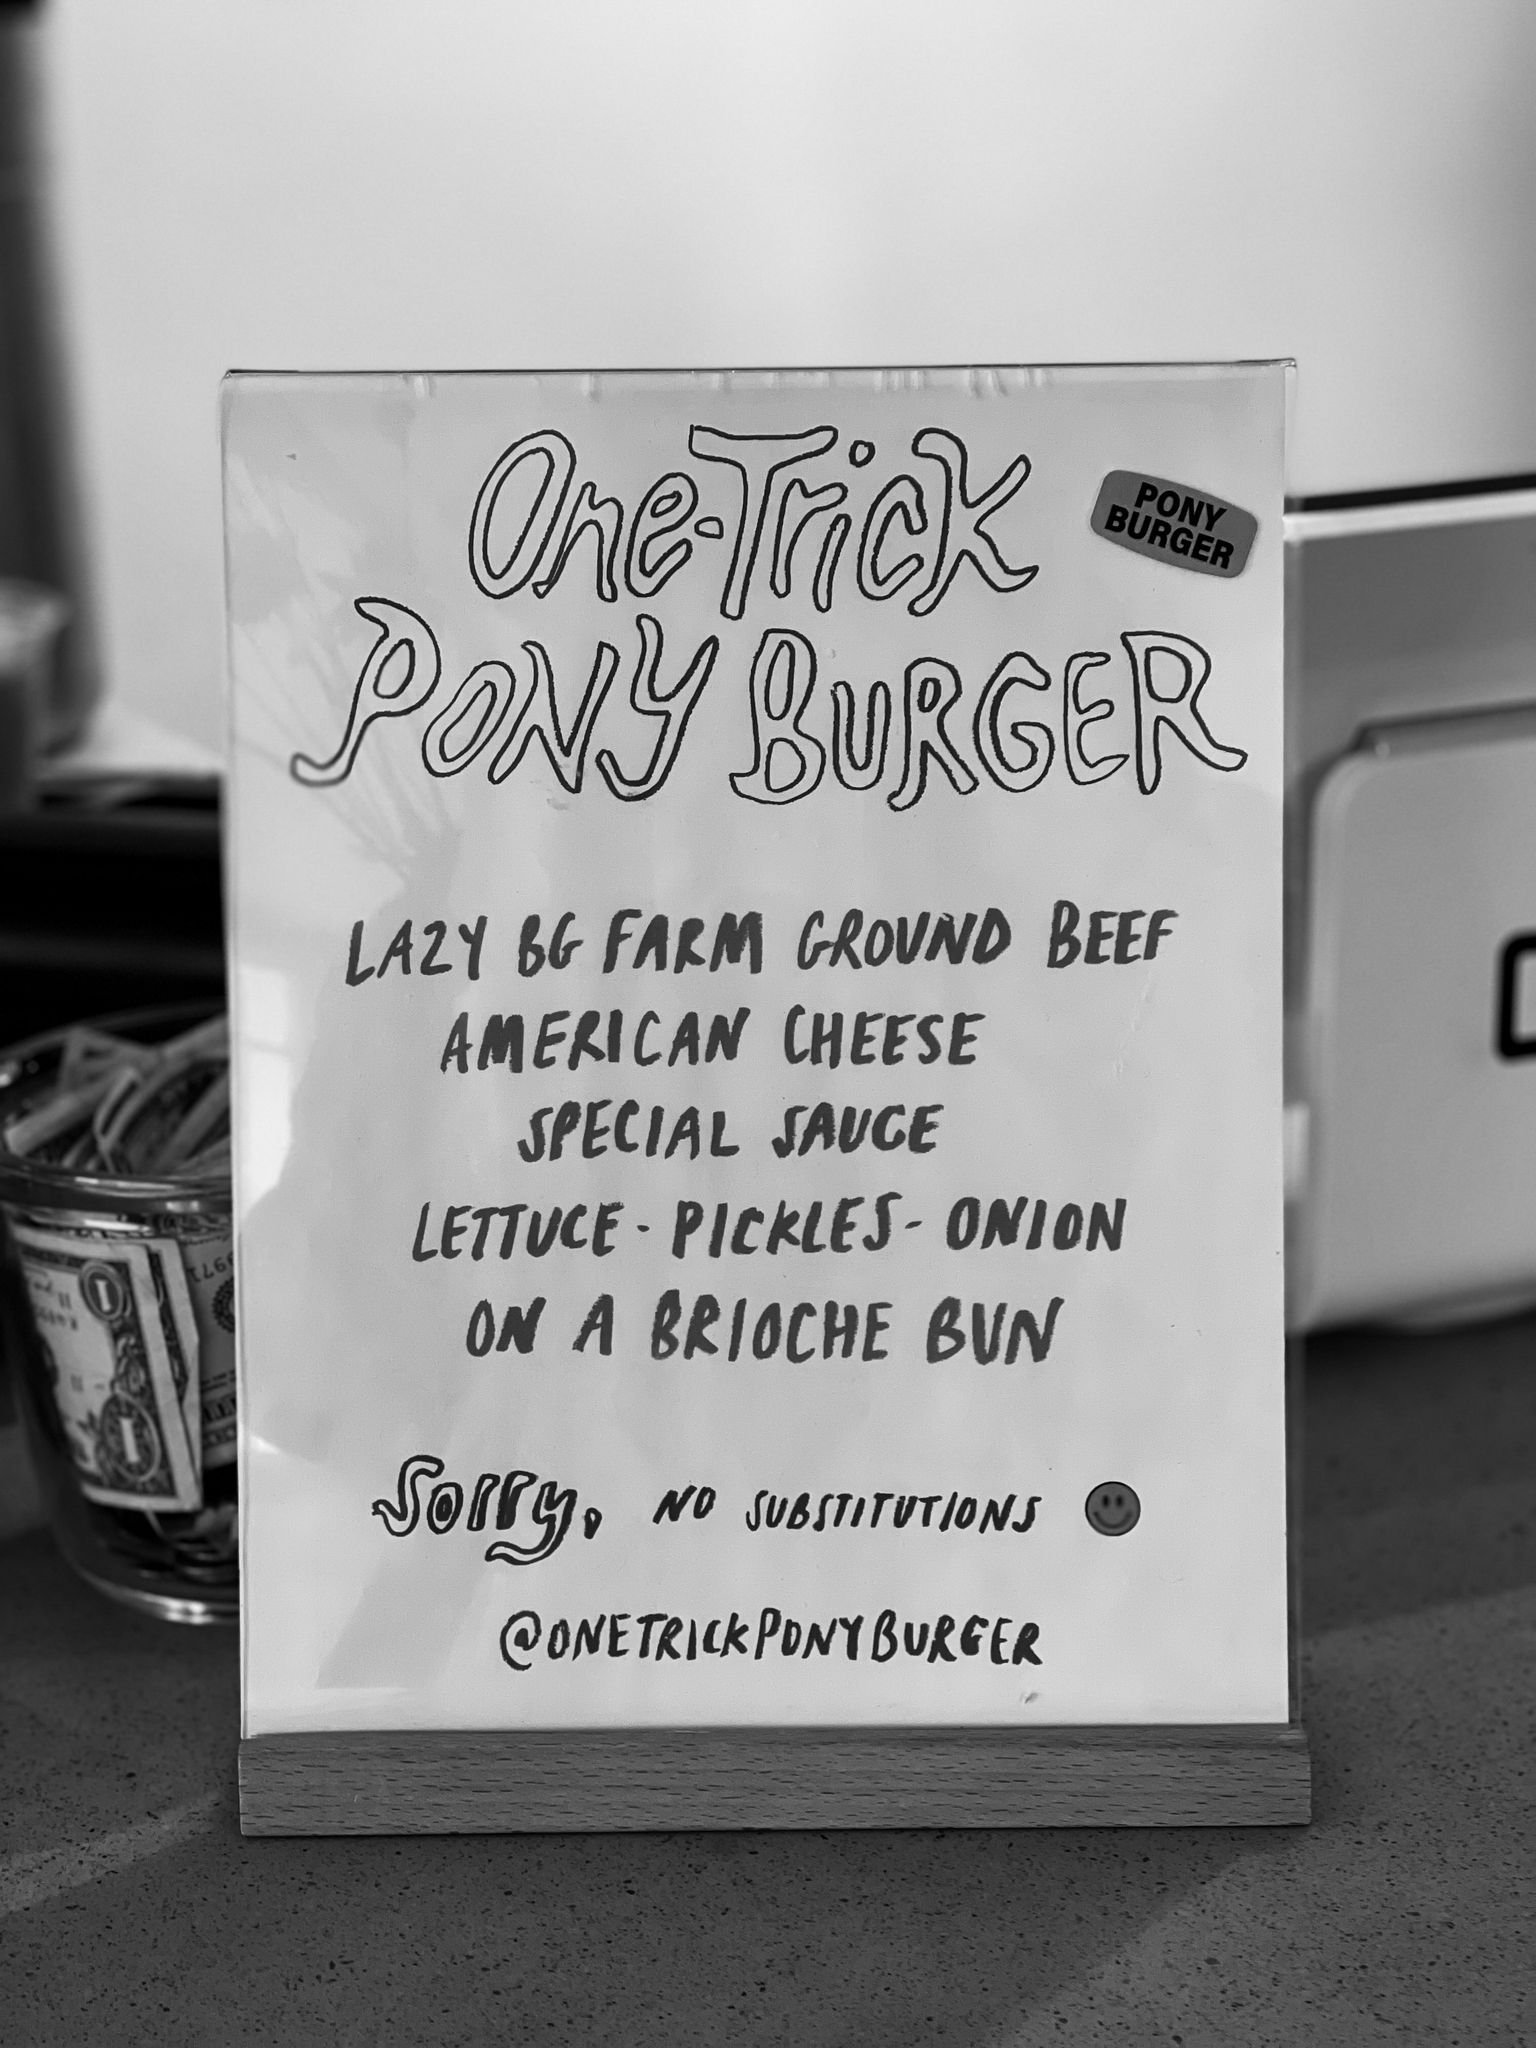 One-Trick
PONY BURGER
PONY
BURGER
LAZY BG FARM GROUND BEEF
AMERICAN CHEESE
SPECIAL SAUCE
LETTUCE - PICKLES - ONION
ON A BRIOCHE BUN
Sorry, NO SUBSTITUTIONS
@ONETRICKPONYBURGER